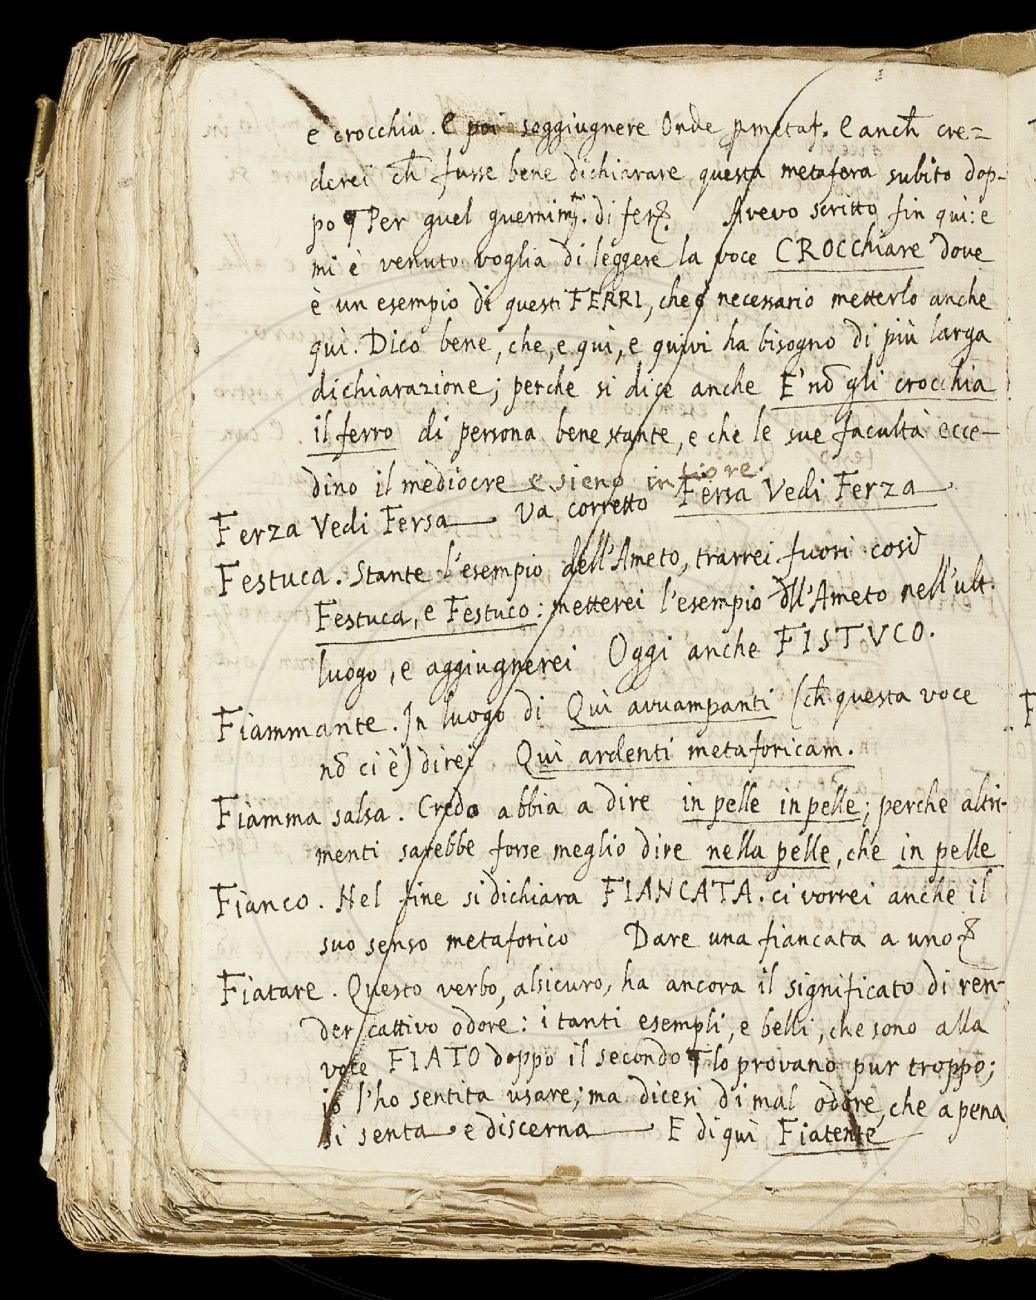 e crocchia. E poi soggiugnere Onde p metaf. E anch̃ cre=
derei ch̃ fusse bene dichiarare questa metafora subito dop-
po ¶ Per quel guernim.to di fer Avevo scritto fin quì: e
mi è venuto voglia di leggere la voce CROCChiare dove
è un esempio di questi FERRI, che è necessario metterlo anche
quì. Dico bene, che, e quì, e quivi ha bisogno di più larga
dichiarazione; perche si dice anche E' nō gli crocchia
il ferro di persona bene stante, e che le sue facultà ecce-
dino il mediocre e sieno in fiore.
Ferza Vedi Fersa Va corretto Fersa Vedi Ferza
Festuca. Stante l'esempio dell'Ameto, trarrei fuori così
Festuca, e Festuco: metterei l'esempio dll'Ameto nell'ult.
luogo, e aggiugnerei Oggi anche FISTVCO.
Fiammante. In luogo di Quì avvampanti (ch̃ questa voce
nō ci è) direi Quì ardenti metaforicam.
Fiamma salsa. Credo abbia a dire in pelle in pelle; perche altri-
menti sarebbe forse meglio dire nella pelle, che in pelle
Fianco. Nel fine si dichiara FIANCATA. ci vorrei anche il
suo senso metaforico Dare una fiancata a uno
Fiatare. Questo verbo, alsicuro, ha ancora il significato di ren-
der cattivo odore: i tanti esempli, e belli, che sono alla
voce FIATO doppo il secondo ¶ lo provano pur troppo;
io l'ho sentita usare; ma dicesi di mal odore, che apena
si senta e discerna E di quì Fiatente